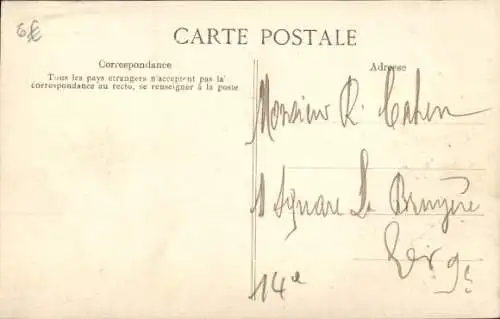 6€
CARTE POSTALE
Correspondance
Tous les pays étrangers n'acceptent pas la
correspondance au recto, se renseigner à la poste
Adresse
Monsieur R. Cahen
1 Square La Bruyère
14e